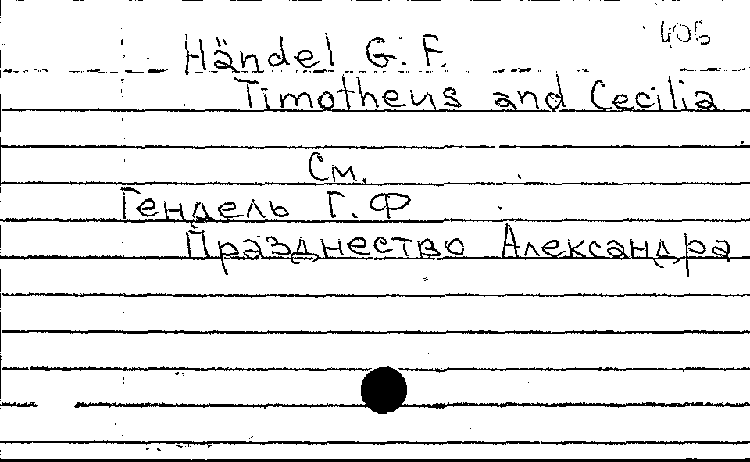 406
Händel G. F.
Timotheus and Cecilia
См.
Гендель Г. Ф
Празднество Александра